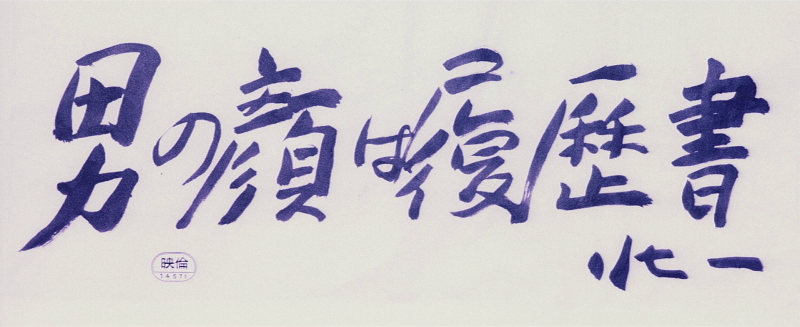 男の顔は履歴書
壮一
映倫
14571